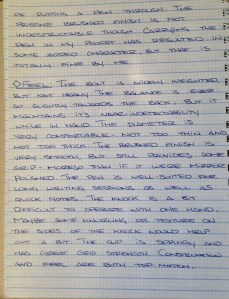 OF PUTTING A PEN THROUGH THE
POSITIVE BRUSHED FINISH IS NOT
INDESTRUCTABLE THOUGH CARRYING THE
PEN IN MY POCKET HAS RESULTED IN
SOME ADDED CHARACTER, BUT THAT IS
TOTALLY FINE BY ME
FEEL: THE BOLT IS NICELY WEIGHTED,
BUT NOT HEAVY. THE BALANCE IS EVER
SO SLIGHTLY TOWARDS THE BACK, BUT IT
MAINTAINS ITS NEAR-INDETECTABILITY
WHILE IN HAND. THE DIAMETER IS
VERY COMFORTABLE. NOT TOO THIN AND
NOT TOO THICK. THE BRUSHED FINISH IS
VERY SMOOTH, BUT STILL PROVIDES SOME
GRIP - MORESO THAN IF IT WERE MIRROR
POLISHED. THE PEN IS WELL-SUITED FOR
LONG WRITING SESSIONS AS WELL AS
QUICK NOTES. THE KNOCK IS A BIT
DIFFICULT TO OPERATE WITH ONE HAND.
MAYBE SOME KNURLING OR TEXTURE ON
THE SIDES OF THE KNOCK WOULD HELP
OUT A BIT. THE CLIP IS SPRINGY AND
HAS GREAT GRIP STRENGTH. CONSTRUCTION
AND FEEL ARE BOTH TOP-NOTCH.